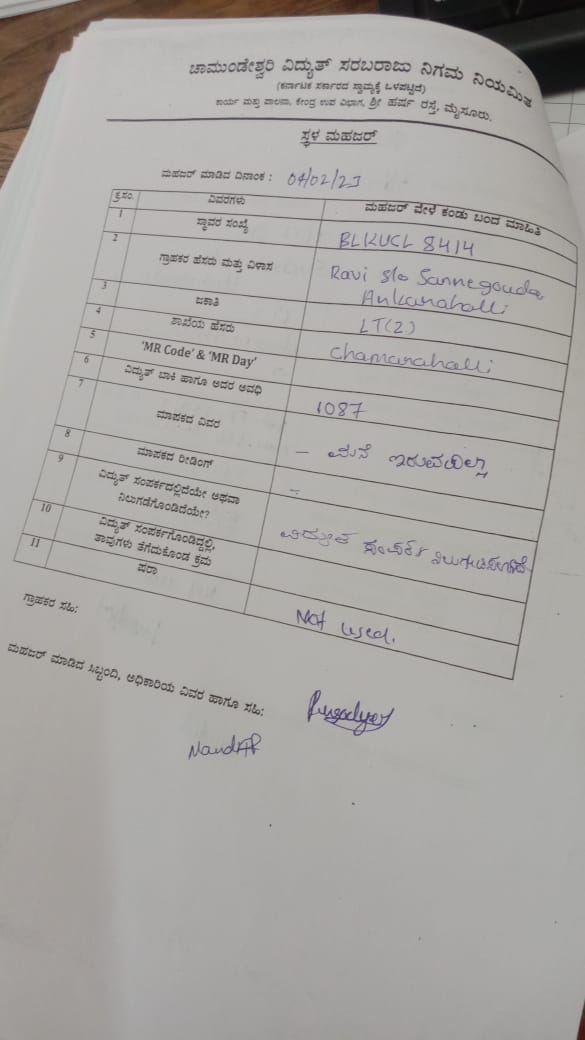 ಚಾಮುಂಡೇಶ್ವರಿ ವಿದ್ಯುತ್ ಸರಬರಾಜು ನಿಗಮ ನಿಯಮಿತ
(ಕರ್ನಾಟಕ ಸರ್ಕಾರದ ಸ್ವಾಮ್ಯಕ್ಕೆ ಒಳಪಟ್ಟಿದೆ)
ಕಾರ್ಯ ಮತ್ತು ಪಾಲನಾ, ಕೇಂದ್ರ ಉಪ ವಿಭಾಗ, ಶ್ರೀ ಹರ್ಷ ರಸ್ತೆ, ಮೈಸೂರು.
ಸ್ಥಳ ಮಹಜರ್
ಮಹಜರ್ ಮಾಡಿದ ದಿನಾಂಕ : 04/02/23
ಕ್ರ.ಸಂ. ವಿವರಗಳು ಮಹಜರ್ ವೇಳೆ ಕಂಡು ಬಂದ ಮಾಹಿತಿ
1 ಸ್ಥಾವರ ಸಂಖ್ಯೆ BLKUCL 8414
2 ಗ್ರಾಹಕರ ಹೆಸರು ಮತ್ತು ವಿಳಾಸ Ravi s/o Sannegouda,
Ankanahalli
3 ಜಕಾತಿ LT(2)
4 ಶಾಖೆಯ ಹೆಸರು Chamanahalli
5 'MR Code' & 'MR Day'
6 ವಿದ್ಯುತ್ ಬಾಕಿ ಹಾಗೂ ಅದರ ಅವಧಿ 1087
7 ಮಾಪಕದ ವಿವರ – ಮನೆ ಇರುವುದಿಲ್ಲ
8 ಮಾಪಕದ ರೀಡಿಂಗ್ –
9 ವಿದ್ಯುತ್ ಸಂಪರ್ಕದಲ್ಲಿದೆಯೇ ಅಥವಾ
ನಿಲುಗಡೆಗೊಂಡಿದೆಯೇ? ವಿದ್ಯುತ್ ಸಂಪರ್ಕ
10 ವಿದ್ಯುತ್ ಸಂಪರ್ಕಗೊಂಡಿದ್ದಲ್ಲಿ,
ತಾವುಗಳು ತೆಗೆದುಕೊಂಡ ಕ್ರಮ
11 ಷರಾ Not used.
ಗ್ರಾಹಕರ ಸಹಿ:
ಮಹಜರ್ ಮಾಡಿದ ಸಿಬ್ಬಂದಿ, ಅಧಿಕಾರಿಯ ವಿವರ ಹಾಗೂ ಸಹಿ: